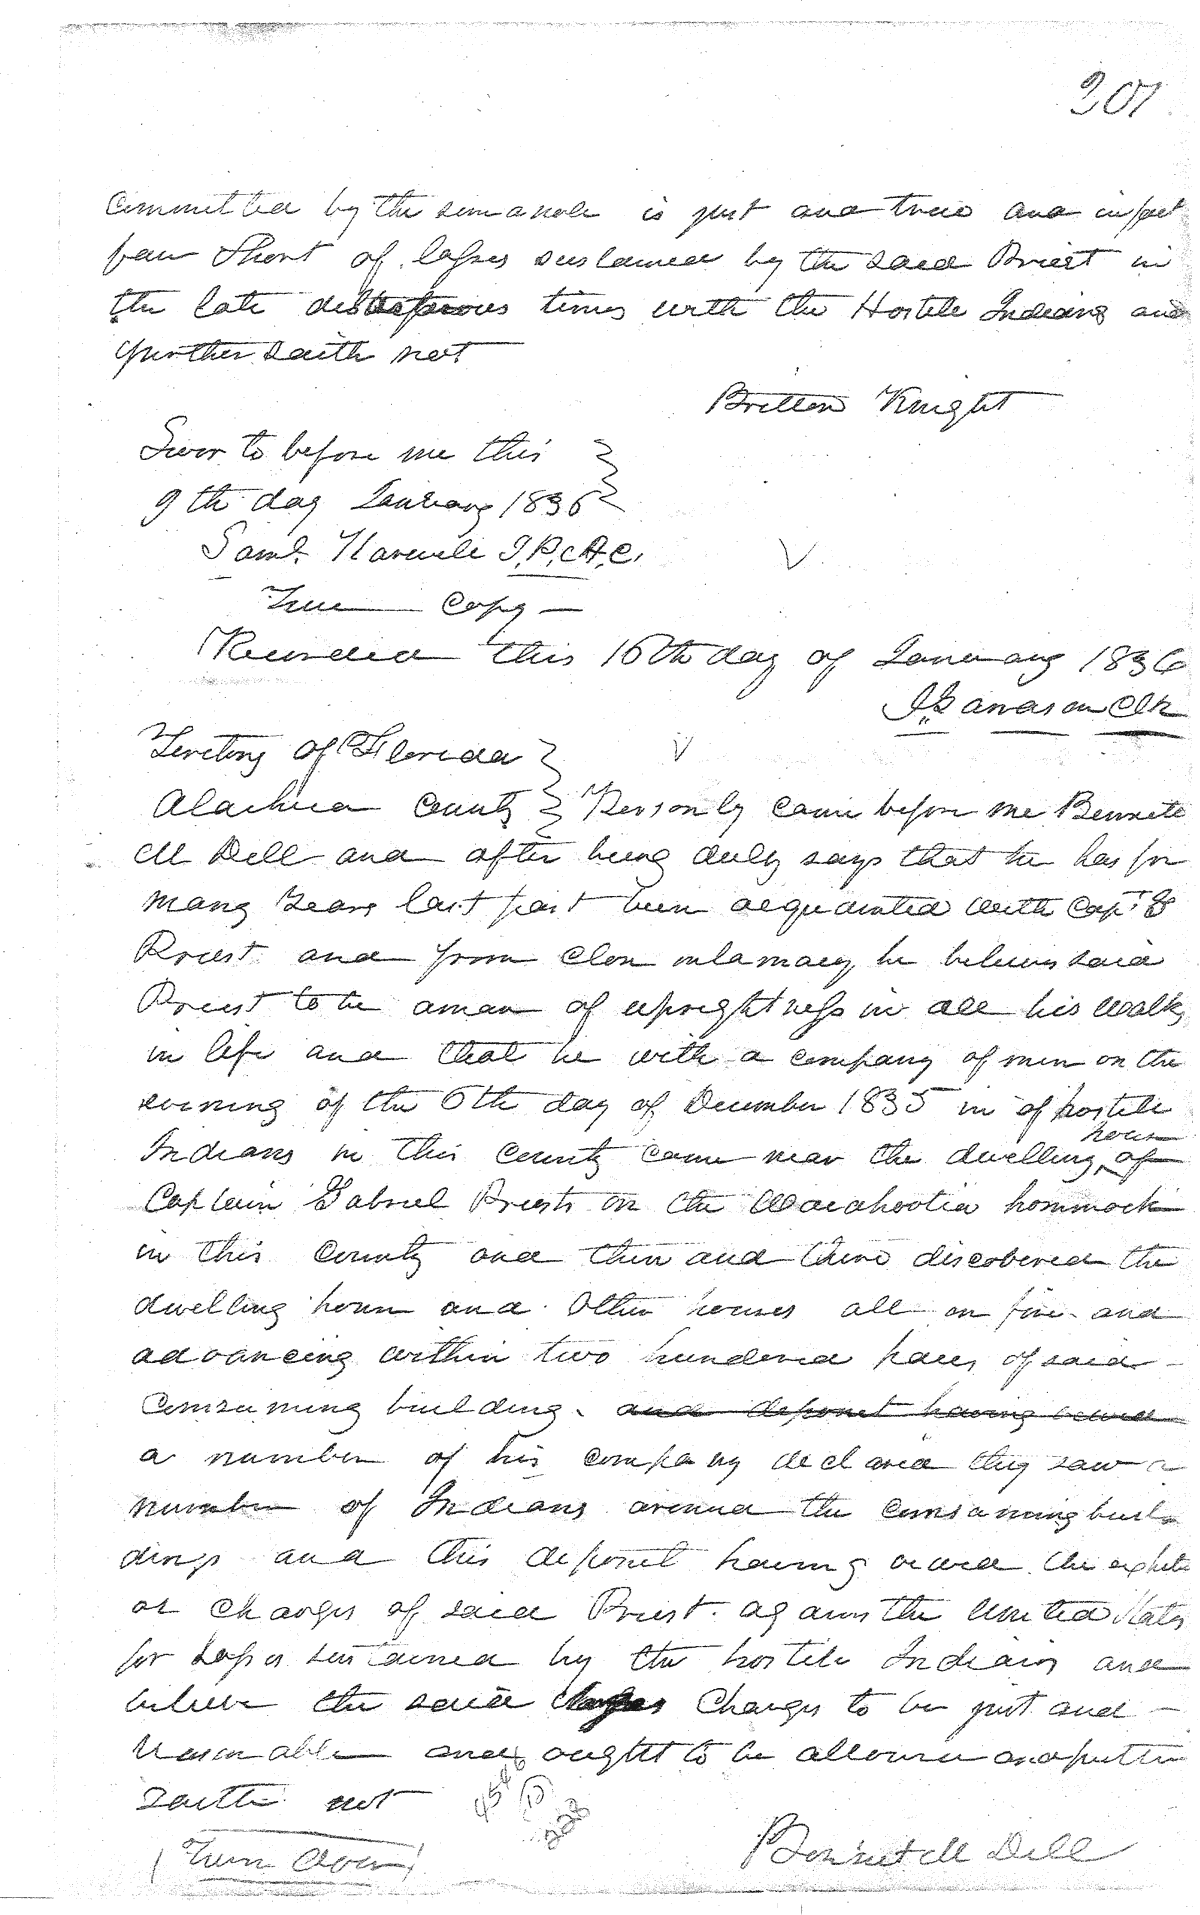 207
Committed by the semanole is just and true and infact
faur Short of losses sustained by the said Priest in
the late times with the Hostile Indians and
further saith not
Britton Knight
Swor to before me this
9th day January 1836
Saml. Harvile J.P.A.C.
True Copy
Recorded this 16th day of January 1836
Clk
Territory of Florida
Alachua County Personly came before me Bennett
M Dell and after being duly says that he has for
many years last past been acquainted with Capt G
Priest and from close intamacy he believes said
Priest to be a man of uprightness in all his walks
in life and that he with a company of men on the
evining of the 6th day of December 1835 in of hostile
house
Indians in this County came near the dwelling of
Captain Gabriel Priests on the Wacahootia hommock
in this County and then and there discovered the
dwelling house and other houses all on fire and
advancing within two hundered paces of said
Consuming building. and deponet having
a number of his company declared they saw a
number of Indians around the Consuming buil
dings and this deponet having the
or Charges of said Priest against the United States
for Losses sustained by the hostile Indians and
believe the said Charges to be just and
reasonable and ought to be allowed and further
saith not
Bennet M Dell
(Turn Over)